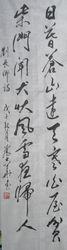 日暮蒼山遠天寒白屋貧
柴門聞犬吠風雪夜歸人
劉長卿詩